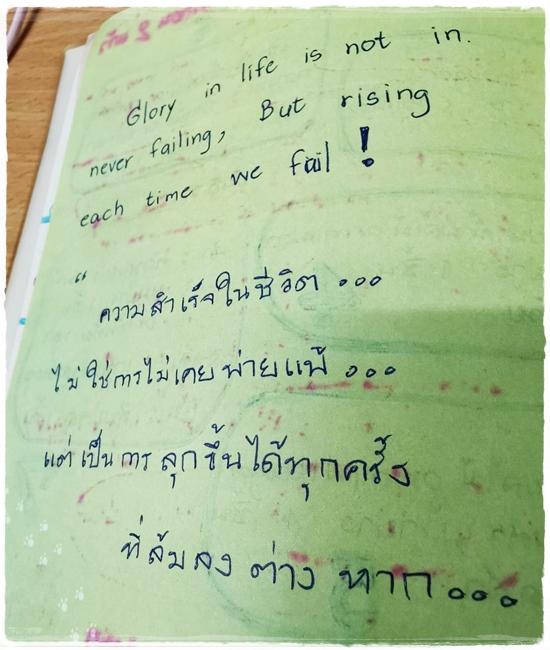 Glory in life is not in.
never failing, But rising
each time we fail !
“ ความสำเร็จในชีวิต ...
ไม่ใช่การไม่เคยพ่ายแพ้ ...
แต่เป็นการลุกขึ้นได้ทุกครั้ง
ที่ล้มลง ต่าง หาก...